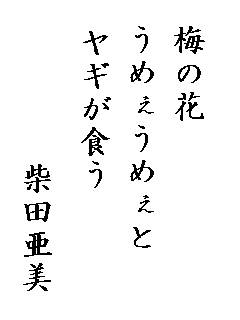 梅の花
うめぇうめぇと
ヤギが食う
柴田亜美